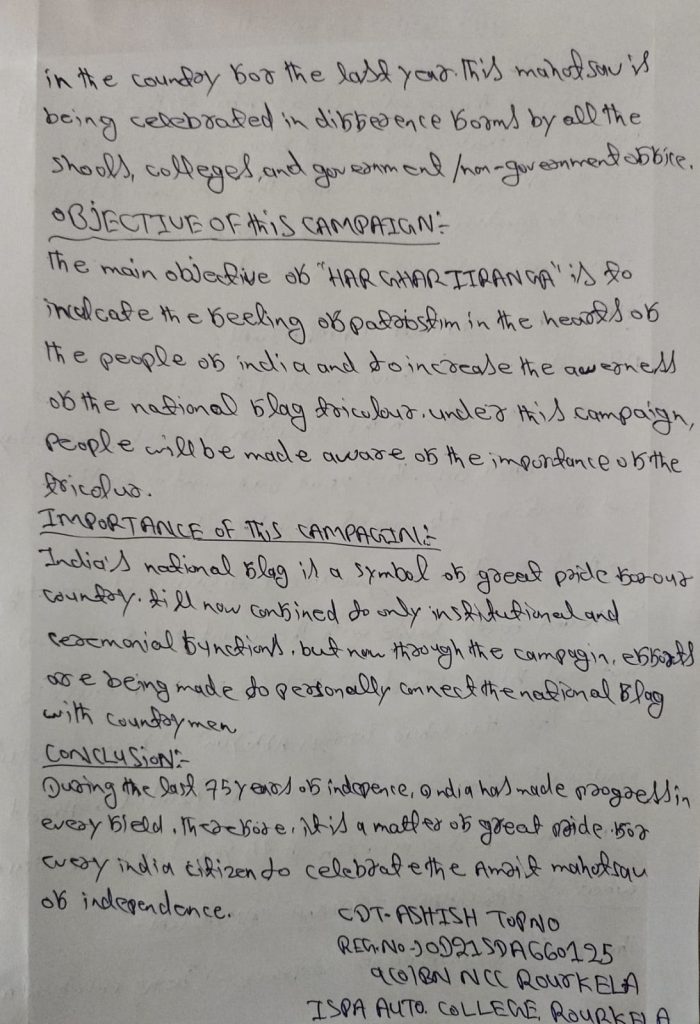 in the country for the last year. This mahotsav is
being celebrated in difference forms by all the
shools, colleges, and government / non-government office.
OBJECTIVE OF this CAMPAIGN:-
The main objective of "HAR GHAR TIRANGA" is to
inculcate the feeling of patrobstim in the hearts of
the people of india and to increase the awerness
of the national flag tricolour. under this campaign,
people will be made aware of the importance of the
tricolur.
IMPORTANCE OF THIS CAMPAGIN:-
India's national flag is a symbol of great pride for our
country. till now confined to only institutional and
ceremonial functions. but now through the campagin, efforts
are being made to personally connect the national flag
with countrymen
CONCLUSION:-
During the last 75 years of indepence, india has made progress in
every field. Therefore, it is a matter of great pride for
every india citizen to celebrate the Amrit mahotsav
of independance.
CDT- ASHISH TOPNO
REG.NO-) OD21SDA660125
9(O)BN NCC ROURKELA
ISPA AUTO. COLLEGE, ROURKELA